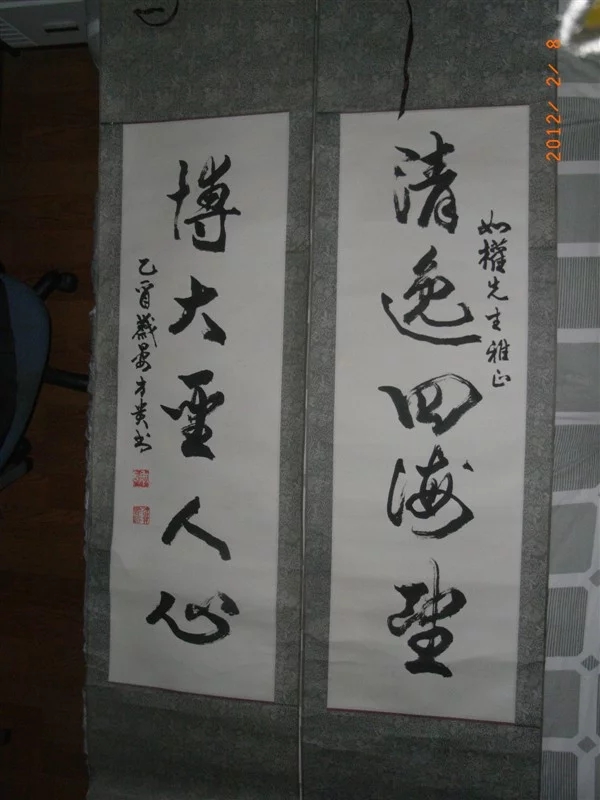 如權先生雅正
清逸四海望
博大聖人心
乙酉歲才贵书
2012/ 2/ 8